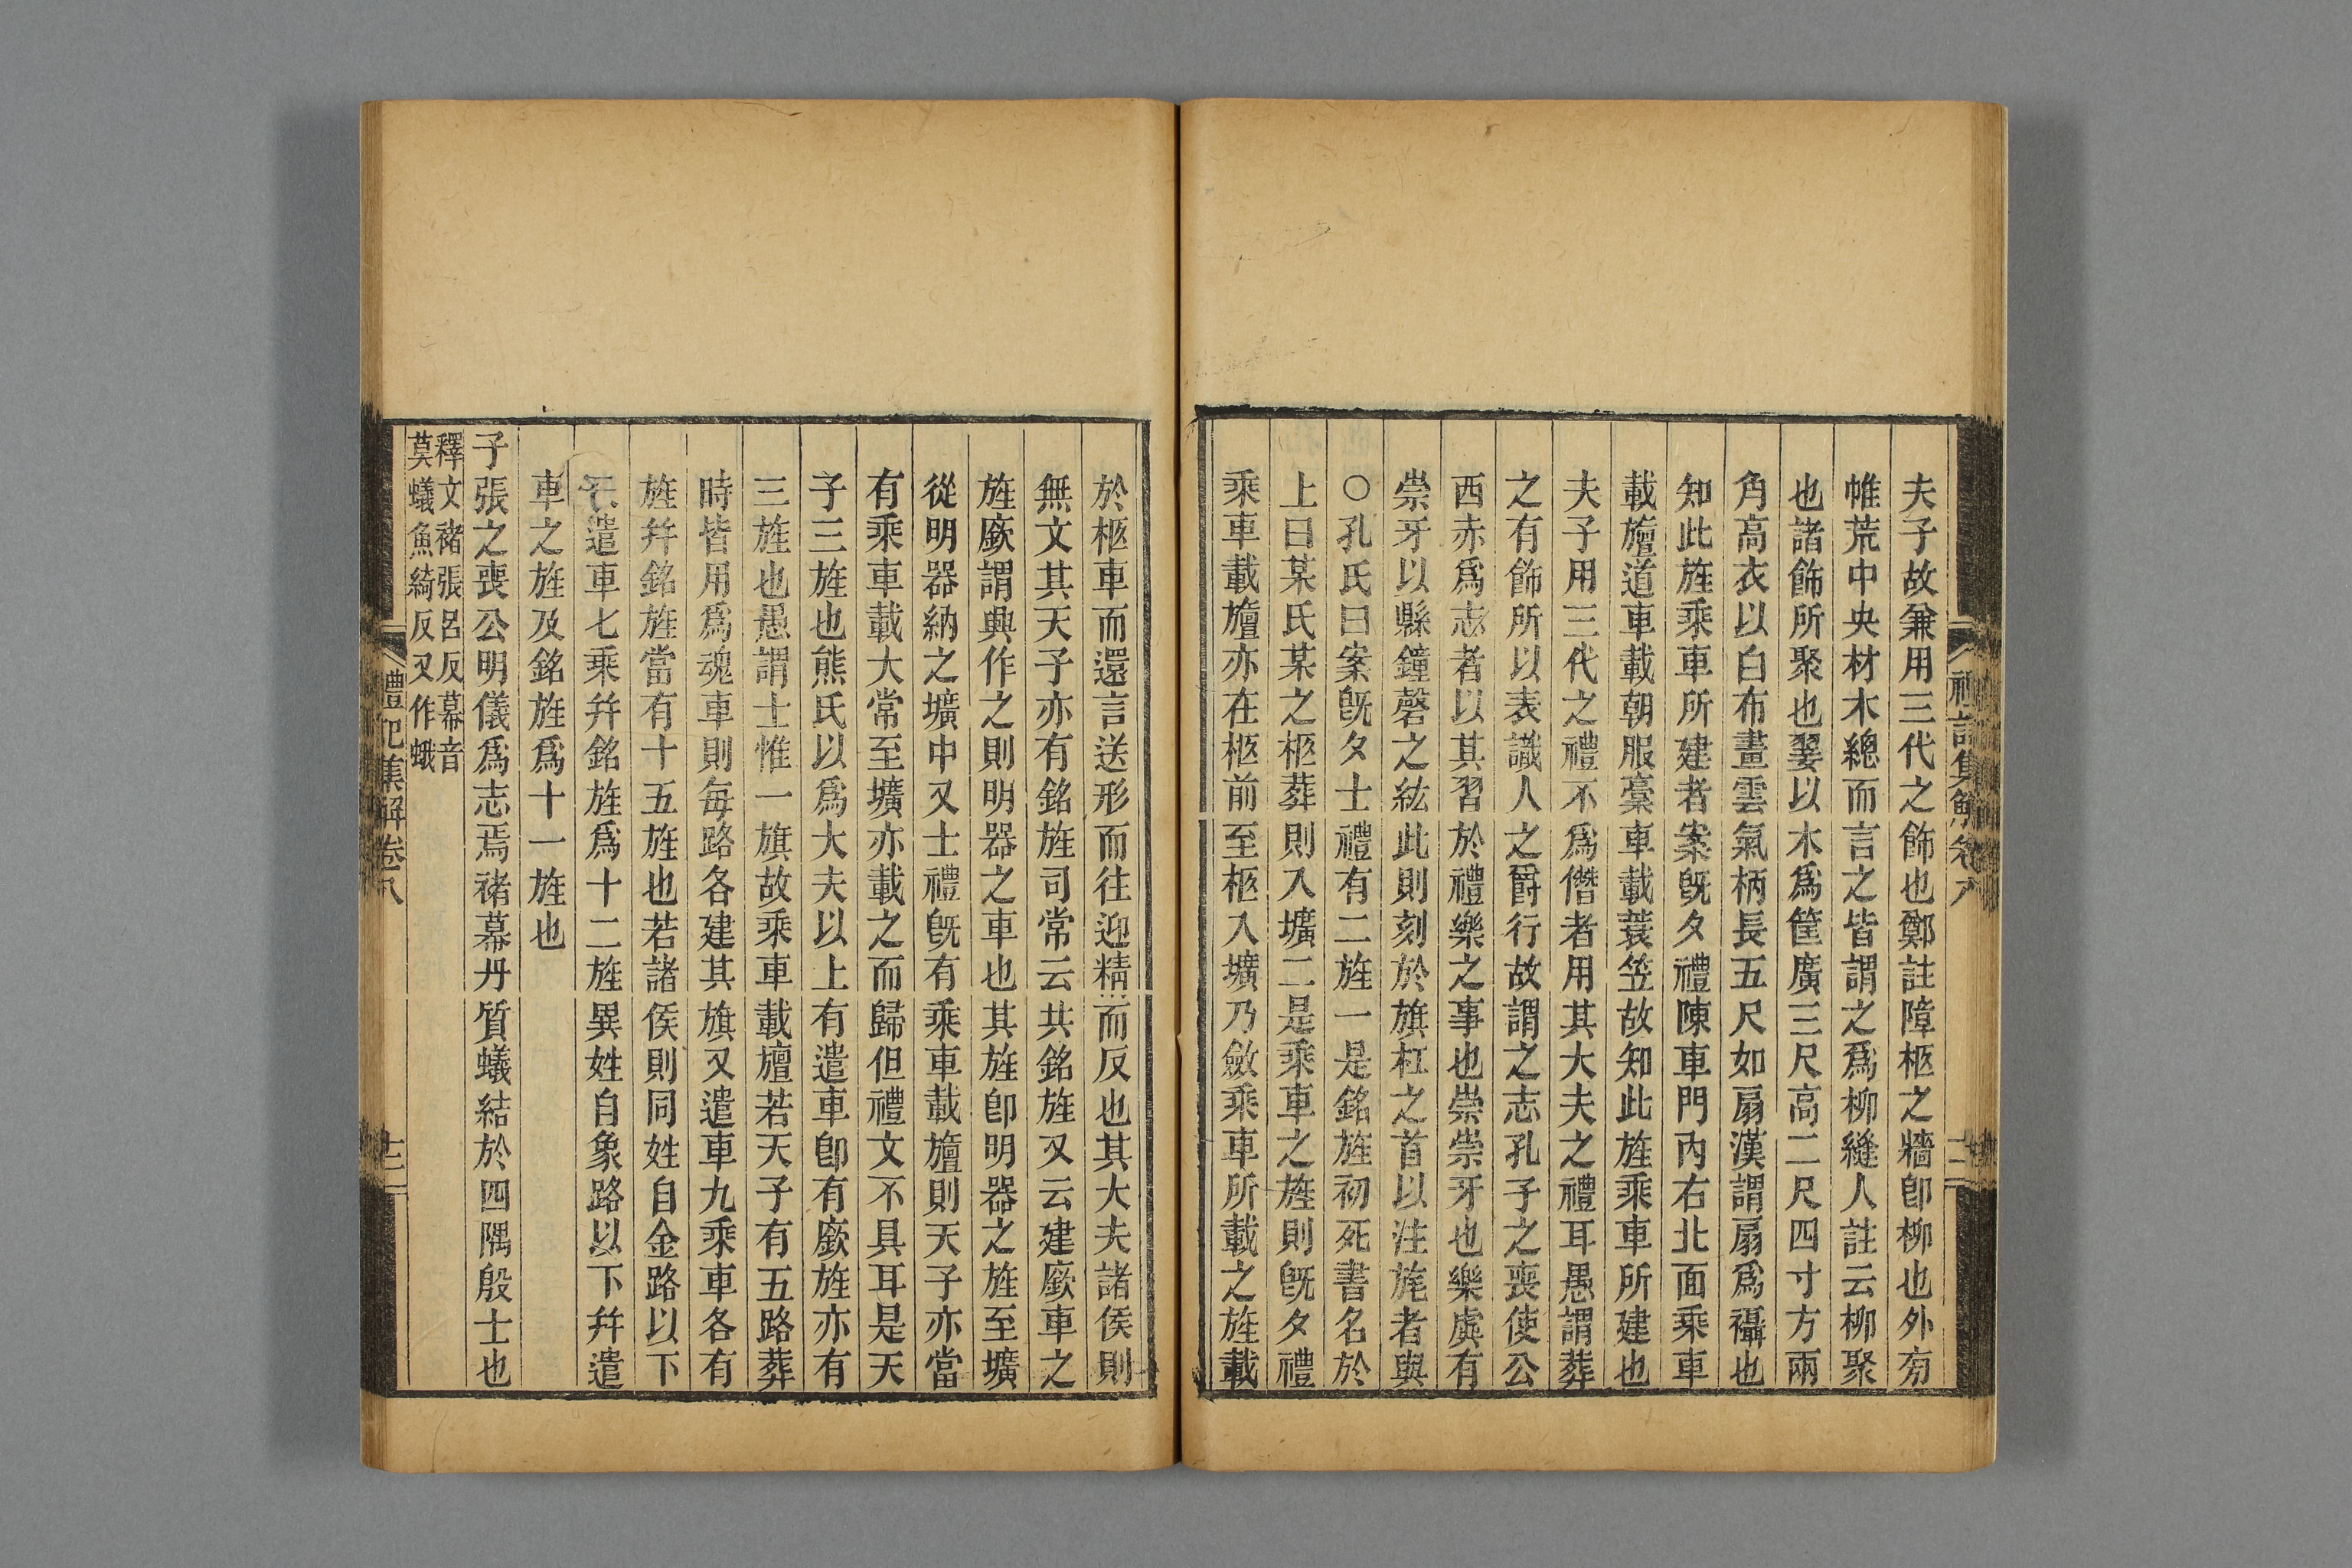 夫子故兼用三代之飾也鄭註障柩之牆卽柳也外有
帷荒中央材木總而言之皆謂之爲柳縫人註云柳聚
也諸飾所聚也翣以木爲筐廣三尺高二尺四寸方兩
角高衣以白布畫雲氣柄長五尺如扇漢謂扇爲䙝也
知此旌乘車所建者案旣夕禮陳車門內右北面乘車
載旜道車載朝服槀車載蓑笠故知此旌乘車所建也
夫子用三代之禮不爲僭者用其大夫之禮耳愚謂葬
之有飾所以表識人之爵行故謂之志孔子之喪使公
西赤爲志者以其習於禮樂之事也崇崇牙也樂虡有
崇牙以縣鐘磬之紘此則刻於旗杠之首以注旄者與
○孔氏曰案旣夕士禮有二旌一是銘旌初死書名於
上曰某氏某之柩葬則入壙二是乘車之旌則旣夕禮
乘車載旜亦在柩前至柩入壙乃斂乘車所載之旌載
禮記集解卷八
十二
於柩車而還言送形而往迎精而反也其大夫諸侯則
無文其天子亦有銘旌司常云共銘旌又云建廞車之
旌廞謂興作之則明器之車也其旌卽明器之旌至壙
從明器納之壙中又士禮旣有乘車載旜則天子亦當
有乘車載大常至壙亦載之而歸但禮文不具耳是天
子三旌也熊氏以爲大夫以上有遣車卽有廞旌亦有
三旌也愚謂士惟一旗故乘車載旜若天子有五路葬
時皆用爲魂車則每路各建其旗又遣車九乘車各有
旌幷銘旌當有十五旌也若諸侯則同姓自金路以下
遣車七乘幷銘旌爲十二旌異姓自象路以下幷遣
車之旌及銘旌爲十一旌也
子張之喪公明儀爲志焉褚幕丹質蟻結於四隅殷士也
釋文褚張呂反幕音
莫蟻魚綺反又作蛾
禮記集解卷八